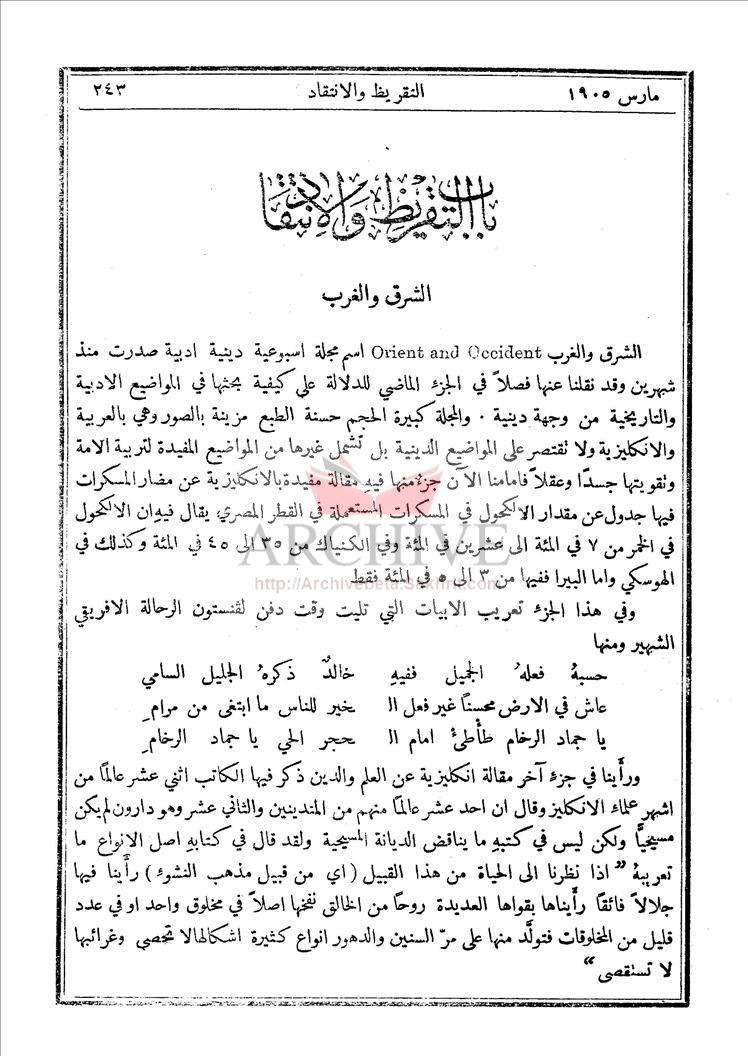 مارس ١٩٠٥ التقريظ والانتقاد ٢٤٣
باب التقريظ والانتقاد
الشرق والغرب
الشرق والغرب Orient and Occident اسم مجلة اسبوعية دينية ادبية صدرت منذ
شهرين وقد نقلنا عنها فصلاً في الجزء الماضي للدلالة على كيفية بحثها في المواضيع الادبية
والتاريخية من وجهة دينية . والمجلة كبيرة الحجم حسنة الطبع مزينة بالصور وهي بالعربية
والانكليزية ولا تقتصر على المواضيع الدينية بل تشمل غيرها من المواضيع المفيدة لتربية الامة
وتقويتها جسدًا وعقلاً فامامنا الآن جزء منها فيه مقالة مفيدة بالانكليزية عن مضار المسكرات
فيها جدول عن مقدار الالكحول في المسكرات المستعملة في القطر المصري يقال فيه ان الالكحول
في الخمر من ٧ في المئة الى عشرين في المئة وفي الكنياك من ٣٥ الى ٤٥ في المئة وكذلك في
الهوسكي واما البيرا ففيها من ٣ الى ٥ في المئة فقط
وفي هذا الجزء تعريب الابيات التي تليت وقت دفن لڤنستون الرحالة الافريقي
الشهير ومنها
حسبهُ فعلهُ الجميل ففيهِ خالدٌ ذكرهُ الجليل السامي
عاش في الارض محسنًا غير فعل الـ ـخير للناس ما ابتغى من مرامِ
يا جماد الرخام طأْطئْ امام الـ ـحجر الحي يا جماد الرخامِ
ورأَينا في جزء آخر مقالة انكليزية عن العلم والدين ذكر فيها الكاتب اثني عشر عالمًا من
اشهر علماء الانكليز وقال ان احد عشر عالمًا منهم من المتدينين والثاني عشر وهو دارون لم يكن
مسيحيًّا ولكن ليس في كتبهِ ما يناقض الديانة المسيحية ولقد قال في كتابهِ اصل الانواع ما
تعريبهُ " اذا نظرنا الى الحياة من هذا القبيل ( اي من قبيل مذهب النشوء ) رأَينا فيها
جلالاً فائقًا رأَيناها بقواها العديدة روحًا من الخالق نفخها اصلاً في مخلوق واحد او في عدد
قليل من المخلوقات فتولَّد منها على مرّ السنين والدهور انواع كثيرة اشكالها لا تحصى وغرائبها
لا تستقصى "
ARCHIVE
http://Archivebeta.Sakhrit.com